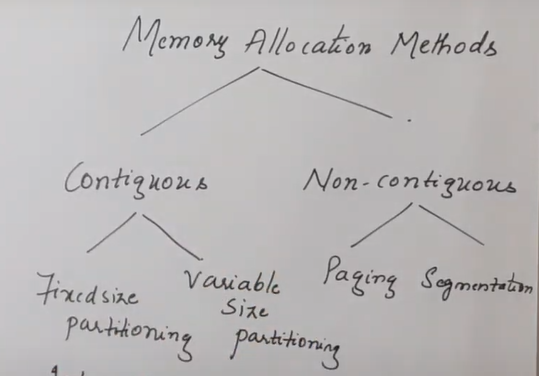 Memory Allocation Methods
Contiguous
Non-contiguous
Fixed size
partitioning
Variable
size
partitioning
Paging
Segmentation